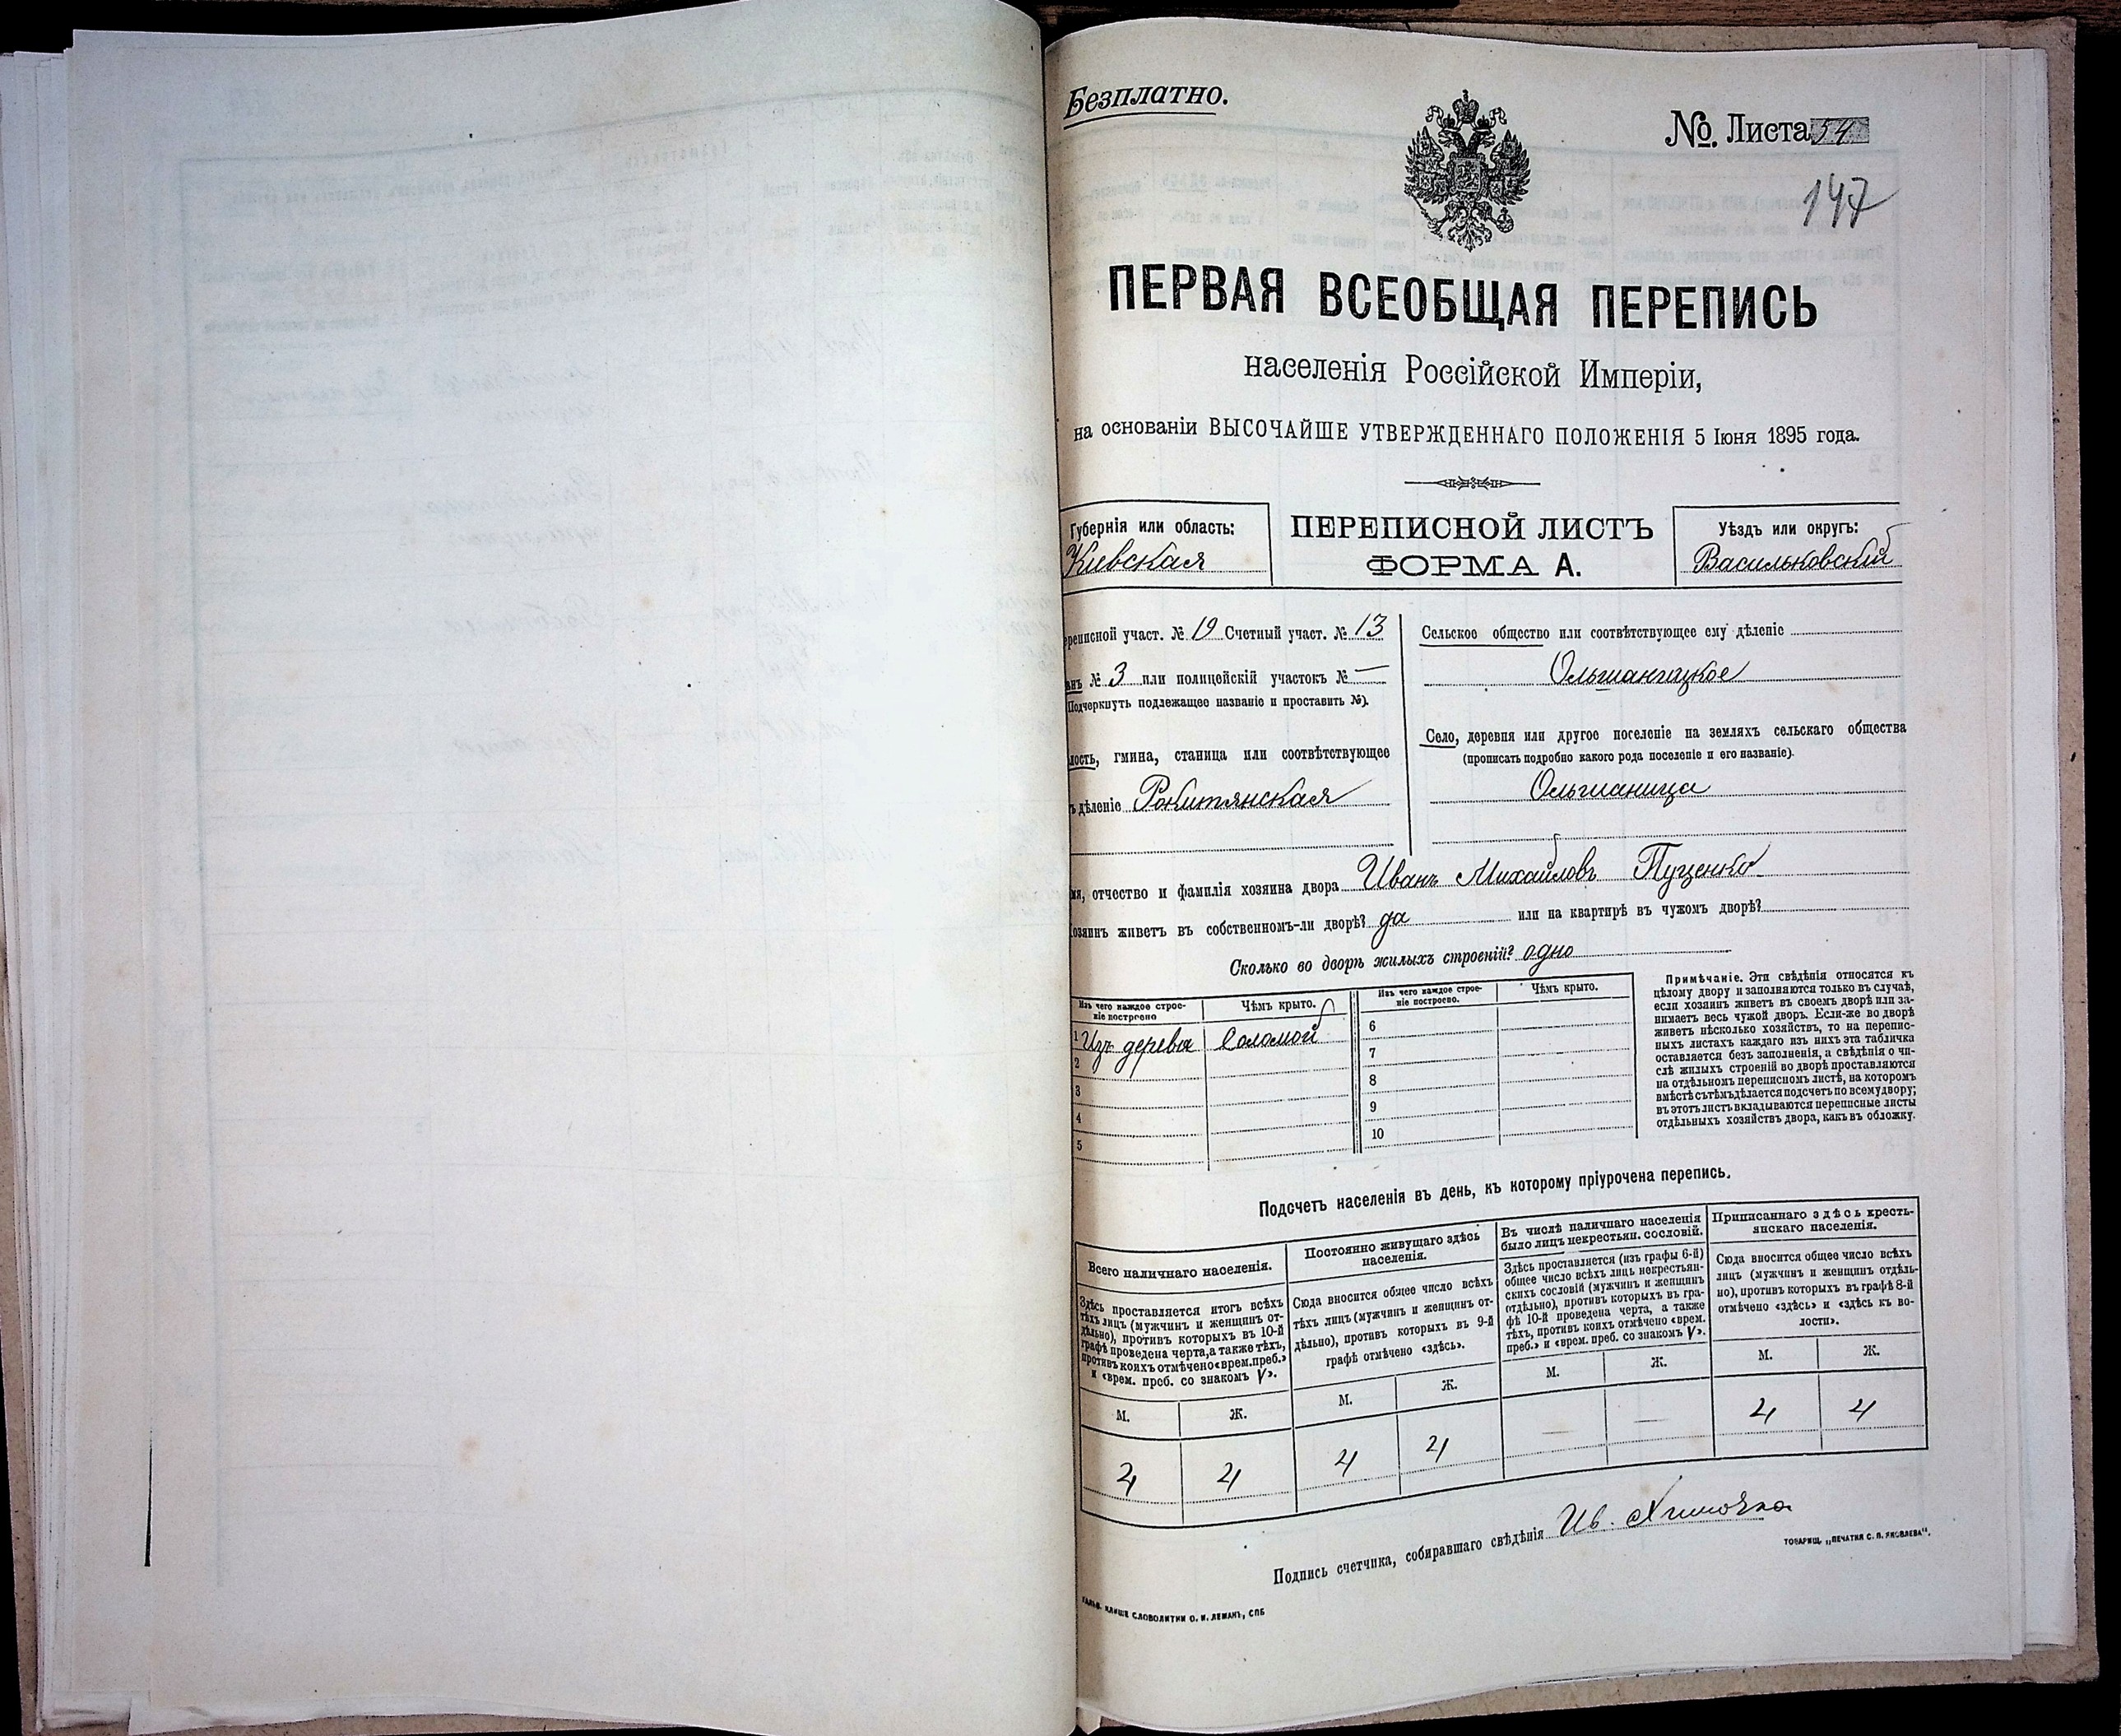 Безплатно.
№. Листа 54
147
ПЕРВАЯ ВСЕОБЩАЯ ПЕРЕПИСЬ
населенія Россійской Имперіи,
на основаніи ВЫСОЧАЙШЕ УТВЕРЖДЕННАГО ПОЛОЖЕНІЯ 5 Іюня 1895 года.
Губернія или область:
Киевская
ПЕРЕПИСНОЙ ЛИСТЪ
ФОРМА А.
Уѣздъ или округъ:
Васильковскій
реписной участ. № 19 Счетный участ. № 13
анъ № 3 или полицейскій участокъ № —
Подчеркнуть подлежащее названіе и проставить №).
лость, гмина, станица или соотвѣтствующее
ъ дѣленіе Рокитянская
Сельское общество или соотвѣтствующее ему дѣленіе
Ольшаницкое
Село, деревня или другое поселеніе на земляхъ сельскаго общества
(прописать подробно какого рода поселеніе и его названіе).
Ольшаница
мя, отчество и фамилія хозяина двора Иванъ Михайловъ Пущенко
озяинъ живетъ въ собственномъ-ли дворѣ? да или на квартирѣ въ чужомъ дворѣ?
Сколько во дворѣ жилыхъ строеній? одно
Изъ чего каждое строе-
ніе построено
Чѣмъ крыто.
Изъ чего каждое строе-
ніе построено.
Чѣмъ крыто.
1 Изъ дерева Соломой 6
2 7
3 8
4 9
5 10
Примѣчаніе. Эти свѣдѣнія относятся къ
цѣлому двору и заполняются только въ случаѣ,
если хозяинъ живетъ въ своемъ дворѣ или за-
нимаетъ весь чужой дворъ. Если-же во дворѣ
живетъ нѣсколько хозяйствъ, то на перепис-
ныхъ листахъ каждаго изъ нихъ эта табличка
оставляется безъ заполненія, а свѣдѣнія о чи-
слѣ жилыхъ строеній во дворѣ проставляются
на отдѣльномъ переписномъ листѣ, на которомъ
вмѣстѣ съ тѣмъ дѣлается подсчетъ по всему двору;
въ этотъ листъ вкладываются переписные листы
отдѣльныхъ хозяйствъ двора, какъ въ обложку.
Подсчетъ населенія въ день, къ которому пріурочена перепись.
Всего наличнаго населенія.
Здѣсь проставляется итогъ всѣхъ
тѣхъ лицъ (мужчинъ и женщинъ от-
дѣльно), противъ которыхъ въ 10-й
графѣ проведена черта, а также тѣхъ,
противъ коихъ отмѣчено «врем. преб.»
и «врем. преб. со знакомъ V».
М. Ж.
4 4
Постоянно живущаго здѣсь
населенія.
Сюда вносится общее число всѣхъ
тѣхъ лицъ (мужчинъ и женщинъ от-
дѣльно), противъ которыхъ въ 9-й
графѣ отмѣчено «здѣсь».
М. Ж.
4 4
Въ числѣ наличнаго населенія
было лицъ некрестьян. сословій.
Здѣсь проставляется (изъ графы 6-й)
общее число всѣхъ лицъ некрестьян-
скихъ сословій (мужчинъ и женщинъ
отдѣльно), противъ которыхъ въ гра-
фѣ 10-й проведена черта, а также
тѣхъ, противъ коихъ отмѣчено «врем.
преб.» и «врем. преб. со знакомъ V».
М. Ж.
— —
Приписаннаго здѣсь кресть-
янскаго населенія.
Сюда вносится общее число всѣхъ
лицъ (мужчинъ и женщинъ отдѣль-
но), противъ которыхъ въ графѣ 8-й
отмѣчено «здѣсь» и «здѣсь къ во-
лости».
М. Ж.
4 4
Подпись счетчика, собиравшаго свѣдѣнія Ив.
ТОВАРИЩ. „ПЕЧАТНЯ С. П. ЯКОВЛЕВА".
КЛИШЕ СЛОВОЛИТНИ О. И. ЛЕМАНЪ, СПБ